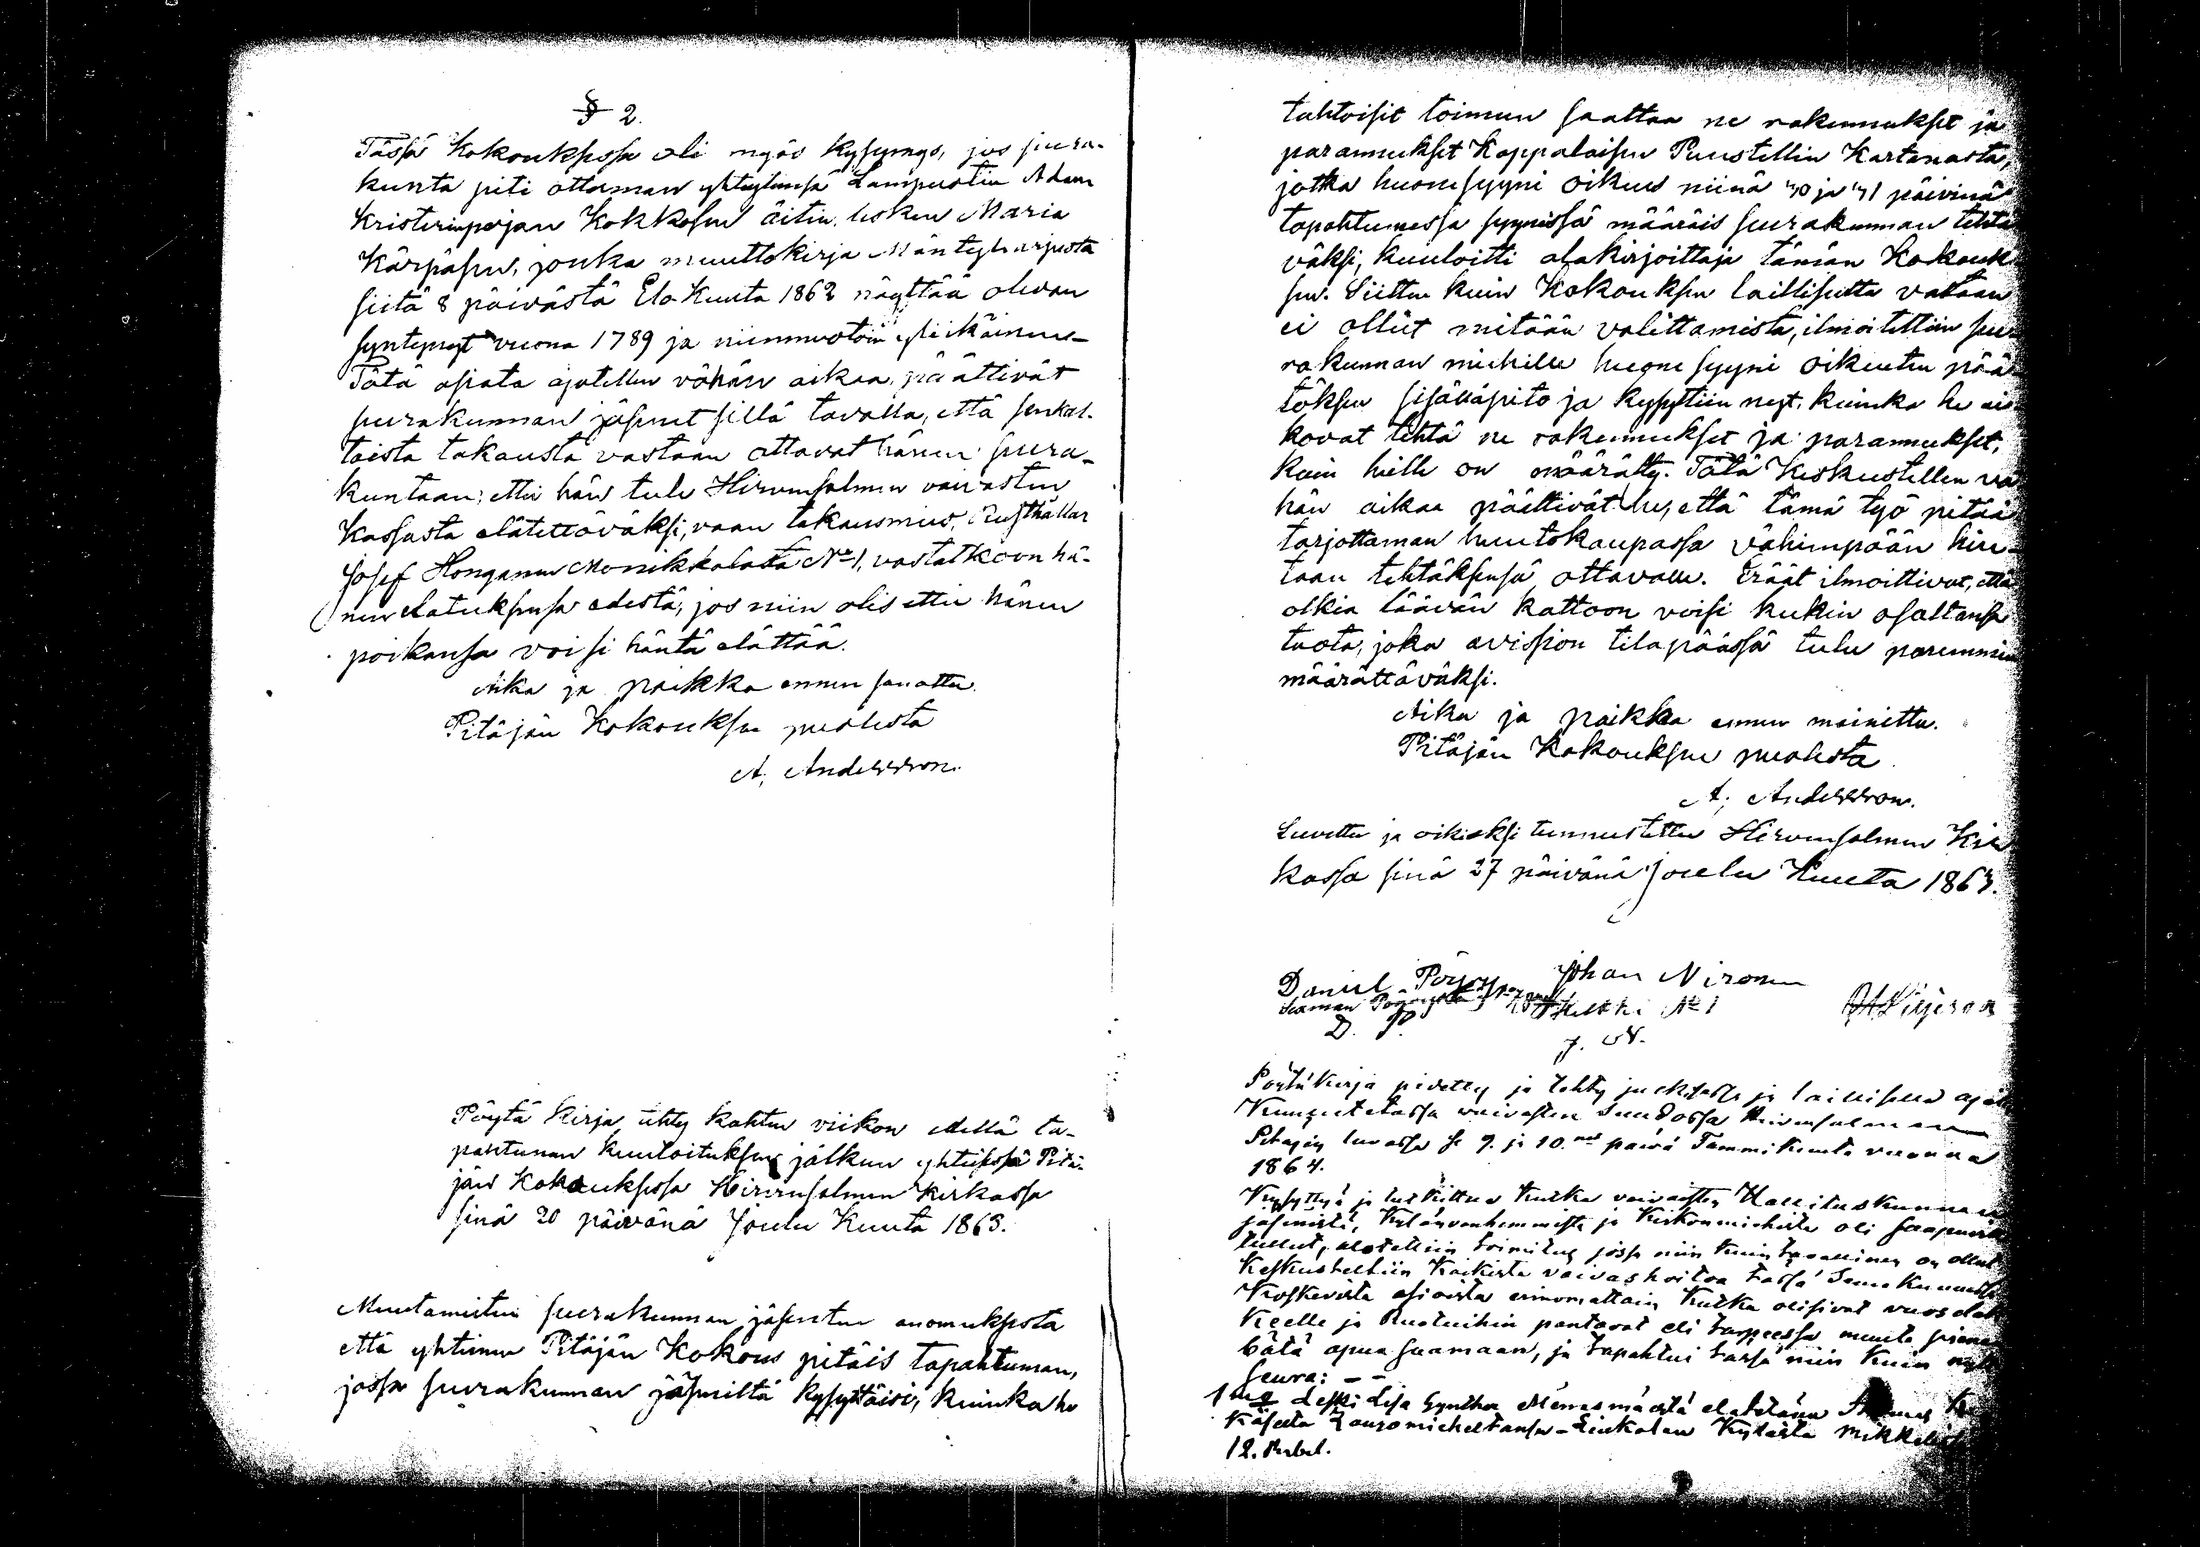 § 2.
Tässä Kokouksessa oli myös kysymys, jos seura-
kunta piti ottaman yhteytensä Lampuotin Adam
Kristerinpojan Kokkosen äitin, lesken Maria
Kärpäsen, jonka muuttokirja Mäntyharjusta
siitä 8 päivästä Elo Kuuta 1862 näyttää olevan
syntynyt vuona 1789 ja niinmuotoin yliikäinen-
Tätä asiata ajatellen vähän aikaa, päättivät
seurakunnan jäsenet sillä tavalla, että senkal-
taista takausta vastaan ottavat hänen seura-
kuntaan; ettei hän tule Hirvensalmen vaivasten
Kassasta elätettäväksi, vaan takausmies, Rusthållar
Josef Honganen Monikkalasta No 1, vastatkoon hä-
nen elatuksensa edestä, jos niin olis ettei hänen
poikansa voisi häntä elättää.
Aika ja paikka ennen sanottu.
Pitäjän Kokouksen puolesta
A. Andersson.
Pöytä Kirja tehty kahten viikon edellä ta-
pahtunan kuuloituksen jälkeen yhteisessä Pitä-
jän Kokouksessa Hirvensalmen Kirkossa
sinä 20 päivänä Joulu Kuuta 1863.
Muutamitten seurakunnan jäsenten anomuksesta
että yhteinen Pitäjän Kokous pitäis tapahtuman,
jossa seurakunnan jäseniltä kysyttäisi, kuinka he
tahtoisit toimeen saattaa ne rakennukset ja
parannukset Koppalaisen Puustellin Kartanosta,
jotka huonesyyni oikeus niinä 40 ja 41 päivinä
tapahtuneessa syynissä määräis seurakunnan tehtä
väksi, kuuloitti alakirjoittaja tämän Kokouk
sen. Siitten kuin Kokouksen laillisutta vastaan
ei ollut mitään valittamista, ilmoitettiin seu-
rakunnan miehille huone syyni oikeuten pää-
töksen sisälläpito ja kysyttiin nyt, kuinka he ai-
kovat tehtä ne rakennukset ja parannukset,
kuin heille on määrätty. Tätä Keskustellen vä
hän aikaa päättivät he, että tämä työ pitää
tarjottaman huutokaupassa vähimpään hin-
taan tehtäksensä ottavalle. Eräät ilmoittivat, että
olkia läävän kattoon voisi kukin osaltansa
tuota, joka avission tilapäässä tulee paremmin
määrättäväksi.
Aika ja paikka ennen mainittu.
Pitäjän Kokouksen puolesta
A. Andersson.
Luvettu ja oikiaksi tunnustettu Hirvensalmen Kir
kossa sinä 27 päivänä Joulu Kuuta 1863.
Daniel Pöyry Johan Nironen
D. P. No 1
J. N.
Pöytä Kirja pidetty ja tehty julkisessa ja laillisesa ajas
Kuugutetassa vaivasten Suudossa Hirvensalmen
Pitäjän luvassa se 9. ja 10. päivä Tammikuuta vuonna
1864.
Kysyttyä ja tutkittua kutka vaivasten Hallituskunnan
jäsenistä, Kylänvanhemmista ja Kirkonmiehistä oli saapuvilla
tullut, alotettiin toimitus jossa niin kuin tavallinen on ollut
Keskusteltiin Kaikista vaivashoitoa tässä Seurakunnassa
Koskevista asioista erinomattain kutka olisivat vuos
Keelle ja Ruotuihin pantavat eli tarpeessa muuta
bätä apua saamaan, ja tapahtui tässä niin kuin
seura: --
1 Leski Lisa elatetänä
12.